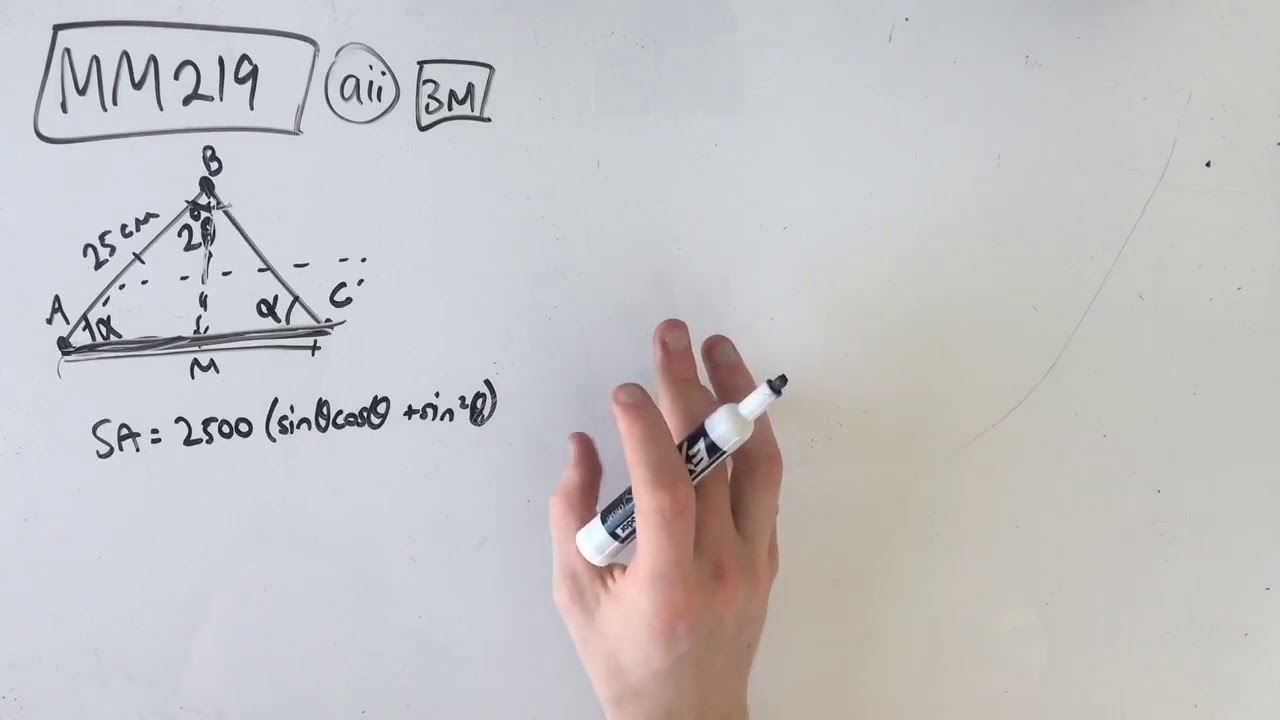 MM219 aii 3M
B
25cm
2θ
A
α
α
C
M
SA = 2500 (sinθcosθ + sin²θ)